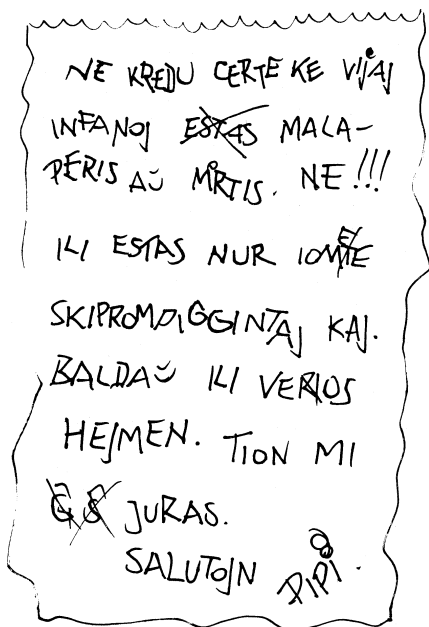 NE KREDU CERTE KE VIJAJ
INFANOJ ESTAS MALA-
PERIS AŬ MIRTIS. NE!!!
ILI ESTAS NUR IOMETE
SKIPROMDIGGINTAJ KAJ.
BALDAŬ ILI VENOS
HEJMEN. TION MI
Ĝ Ŝ JURAS.
SALUTOJN PIPI.